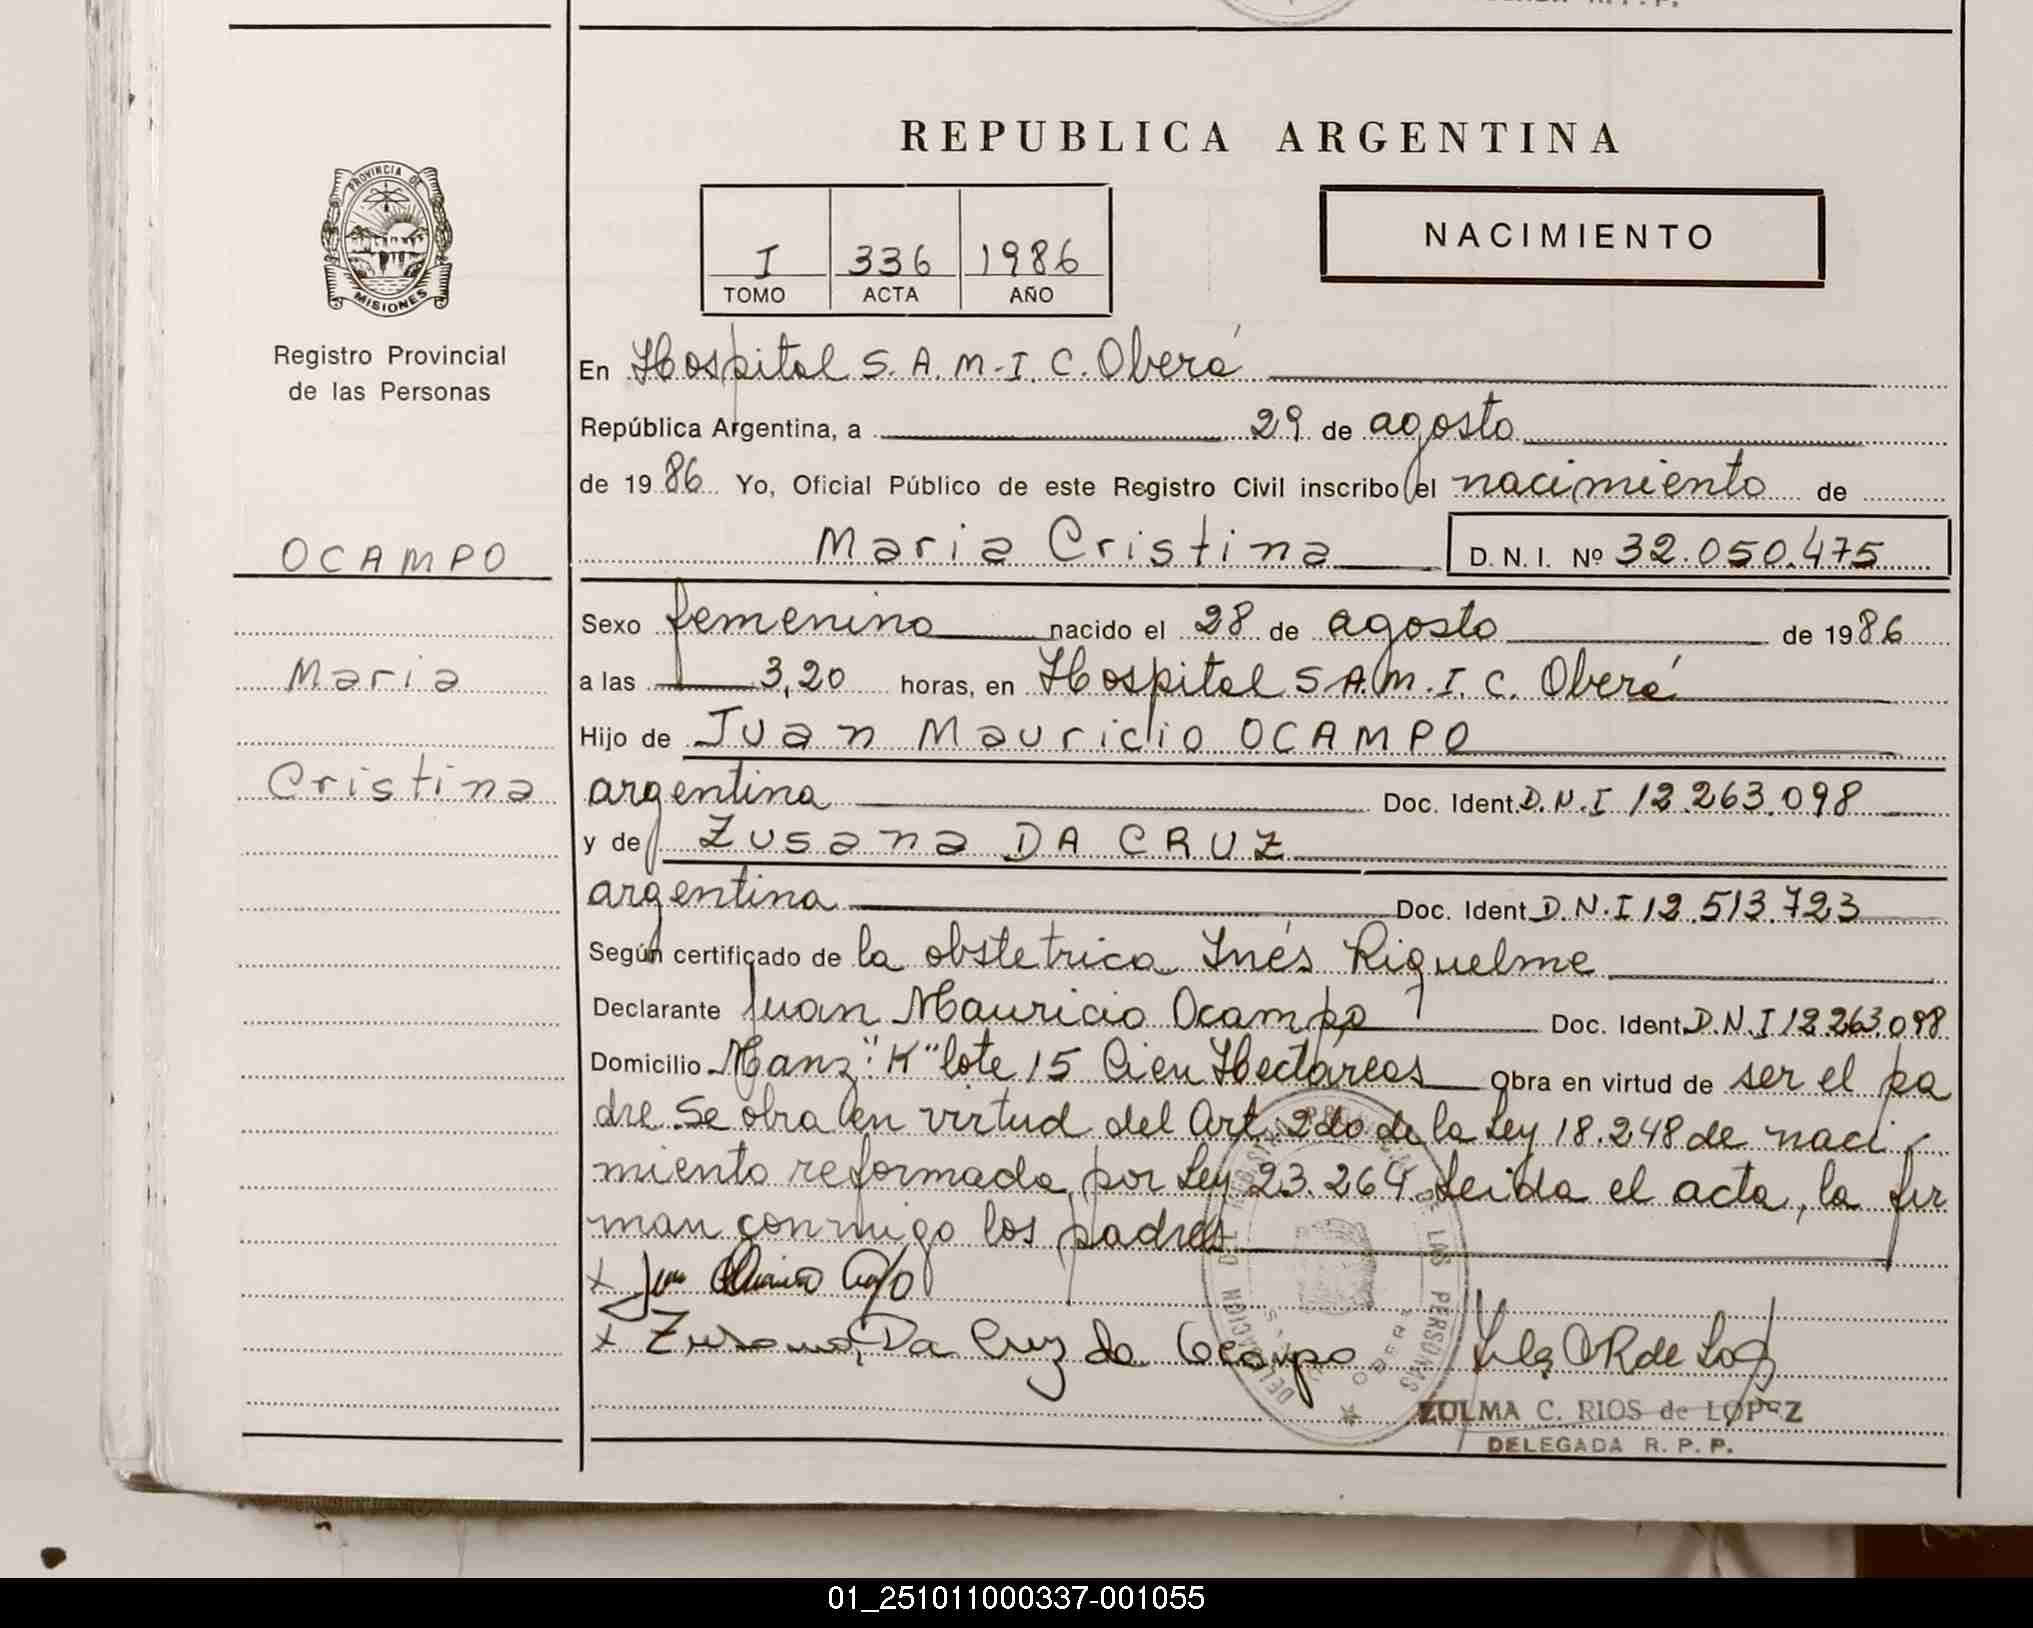 REPUBLICA ARGENTINA
PROVINCIA DE
MISIONES
Registro Provincial
de las Personas
I 336 1986
TOMO ACTA AÑO
NACIMIENTO
En Hospital S.A.M.I.C. Oberá
República Argentina, a 29 de agosto
de 1986 Yo, Oficial Público de este Registro Civil inscribo el nacimiento de
OCAMPO
Maria Cristina D.N.I. Nº 32.050.475
Sexo femenino nacido el 28 de agosto de 1986
Maria
a las 3,20 horas, en Hospital S A.M.I.C. Oberá
Hijo de Juan Mauricio OCAMPO
Cristina
argentina Doc. Ident. D.N.I 12.263.098
y de Zusana DA CRUZ
argentina Doc. Ident. D.N.I 12.513.723
Según certificado de la obstetrica Inés Riquelme
Declarante Juan Mauricio Ocampo Doc. Ident. D.N.I 12.263.098
Domicilio Manz "K" lote 15 Cien Hectáreas Obra en virtud de ser el pa
dre. Se obra en virtud del Art. 2do de la Ley 18.248 de naci
miento reformada por Ley 23.264 Leida el acta, la fir
man conmigo los padres
x Juan
x Zusana Da Cruz de Ocampo
LAS PERSONAS
OBERA
ZULMA C. RIOS de LOPEZ
DELEGADA R. P. P.
01_251011000337-001055